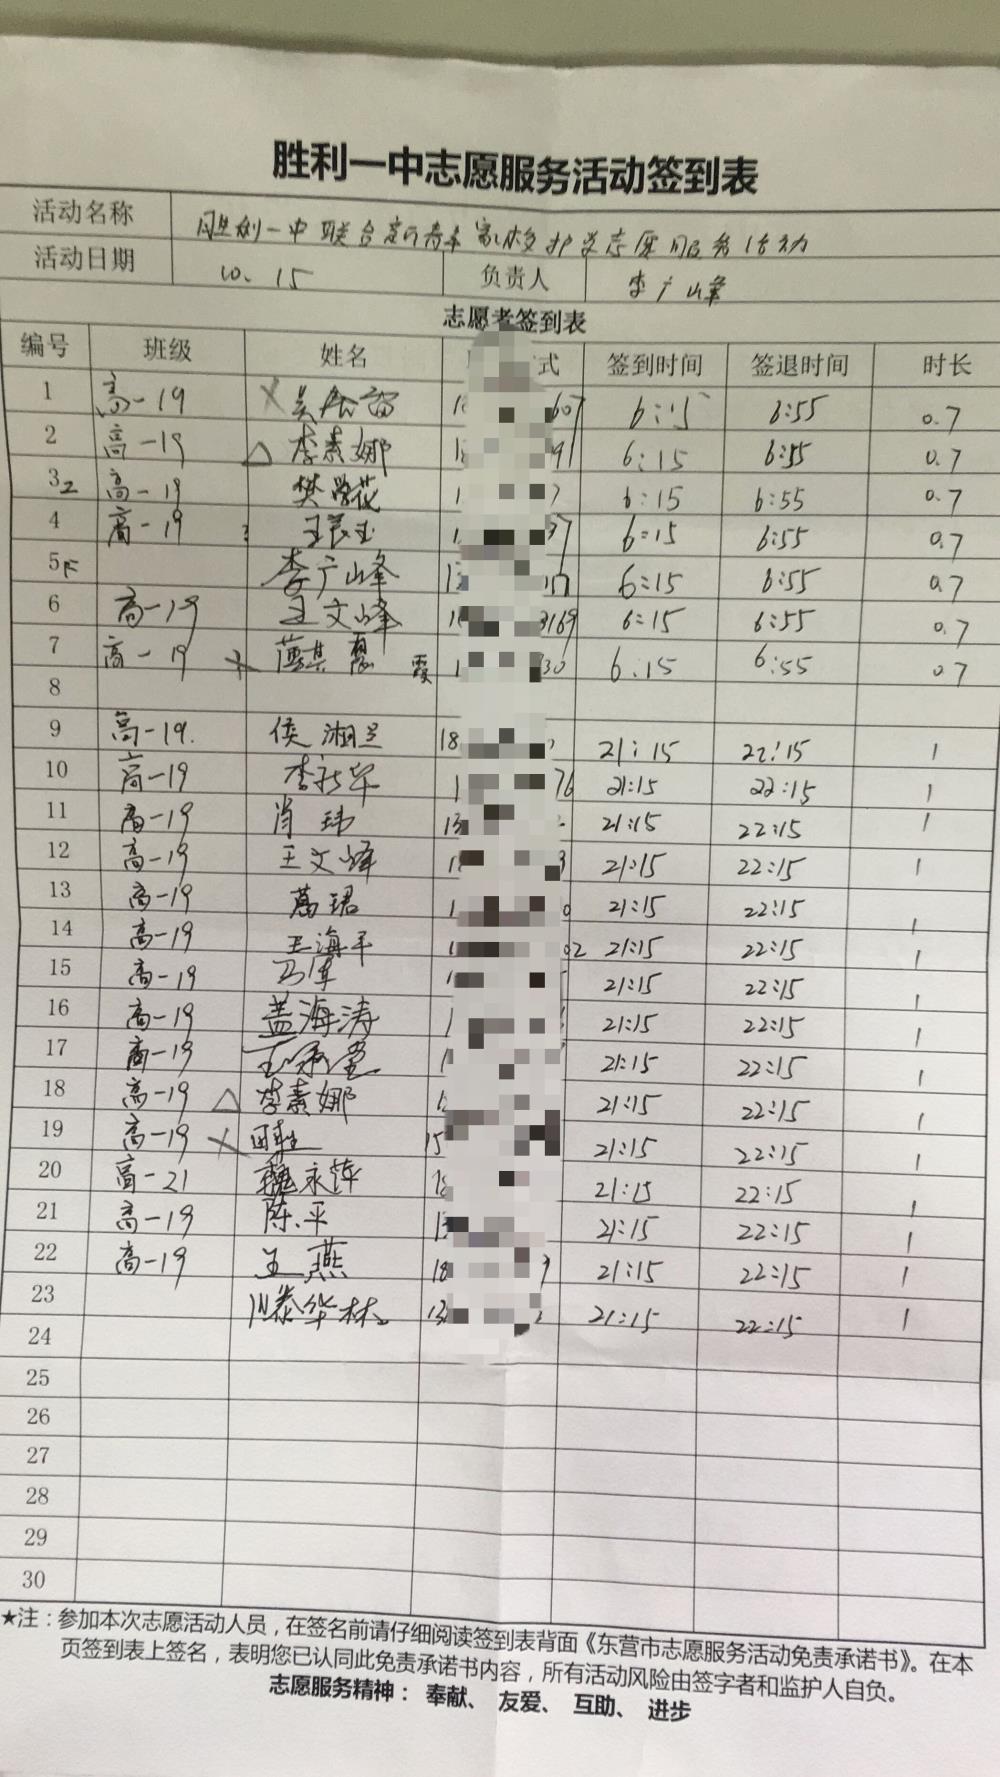 胜利一中志愿服务活动签到表
活动名称 胜利一中联合 家校护学志愿服务活动
活动日期 10.15 负责人 李广山峰
志愿者签到表
编号 班级 姓名 式 签到时间 签退时间 时长
1 高一19 X 吴 607 6:15 6:55 0.7
2 高一19 △ 李素娜 91 6:15 6:55 0.7
3 高一19 樊 花 7 6:15 6:55 0.7
4 高一19 王 玉 37 6:15 6:55 0.7
5 李广峰 6:15 6:55 0.7
6 高一19 王文峰 3169 6:15 6:55 0.7
7 高一19 X 薄其 霞 30 6:15 6:55 0.7
8
9 高一19. 侯湘兰 18 21:15 22:15 1
10 高一19 李新华 1 76 21:15 22:15 1
11 高一19 肖玮 13 21:15 22:15 1
12 高一19 王文峰 21:15 22:15 1
13 高一19 葛珺 1 0 21:15 22:15 1
14 高一19 王海平 02 21:15 22:15 1
15 高一19 21:15 22:15 1
16 高一19 盖海涛 1 21:15 22:15 1
17 高一19 王 1 21:15 22:15 1
18 高一19 △ 李素娜 21:15 22:15 1
19 高一19 X 15 21:15 22:15 1
20 高一21 魏永萍 21:15 22:15 1
21 高一19 陈平 13 21:15 22:15 1
22 高一19 王燕 18 9 21:15 22:15 1
23 林 13 21:15 22:15 1
24
25
26
27
28
29
30
★注：参加本次志愿活动人员，在签名前请仔细阅读签到表背面《东营市志愿服务活动免责承诺书》。在本
页签到表上签名，表明您已认同此免责承诺书内容，所有活动风险由签字者和监护人自负。
志愿服务精神： 奉献、 友爱、 互助、 进步